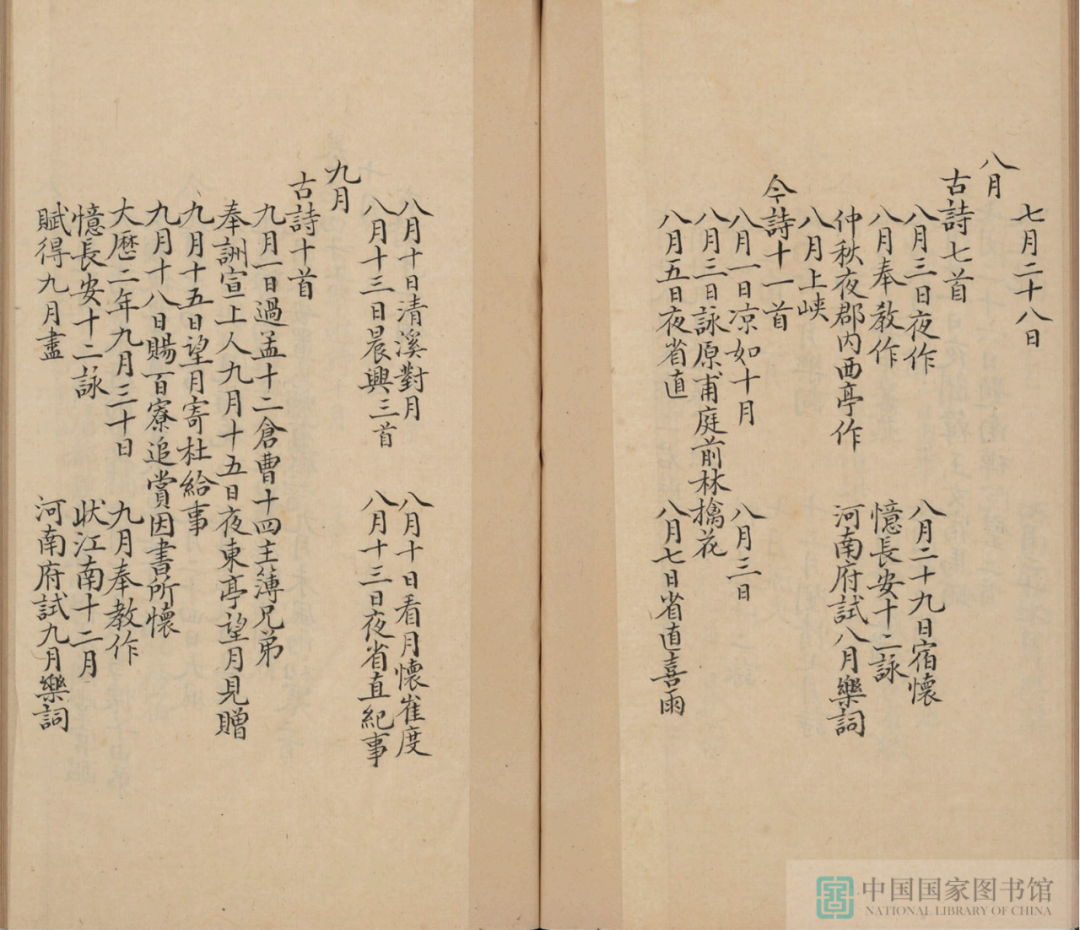 七月二十八日
八月
古詩七首
八月三日夜作　八月二十九日宿懷
八月奉教作　憶長安十二詠
仲秋夜郡內西亭作　河南府試八月樂詞
八月上峽
今詩十一首
八月一日凉如十月　八月三日
八月三日詠原甫庭前林檎花
八月五日夜省直　八月七日省直喜雨
八月十日清溪對月　八月十日看月懷崔度
八月十三日晨興三首　八月十三日夜省直紀事
九月
古詩十首
九月一日過孟十二倉曹十四主簿兄弟
奉詶宣上人九月十五日夜東亭望月見贈
九月十五日望月寄杜給事
九月十八日賜百寮追賞因書所懷
大歷二年九月三十日　九月奉教作
憶長安十二詠　狀江南十二月
賦得九月盡　河南府試九月樂詞
中国国家图书馆
NATIONAL LIBRARY OF CHINA